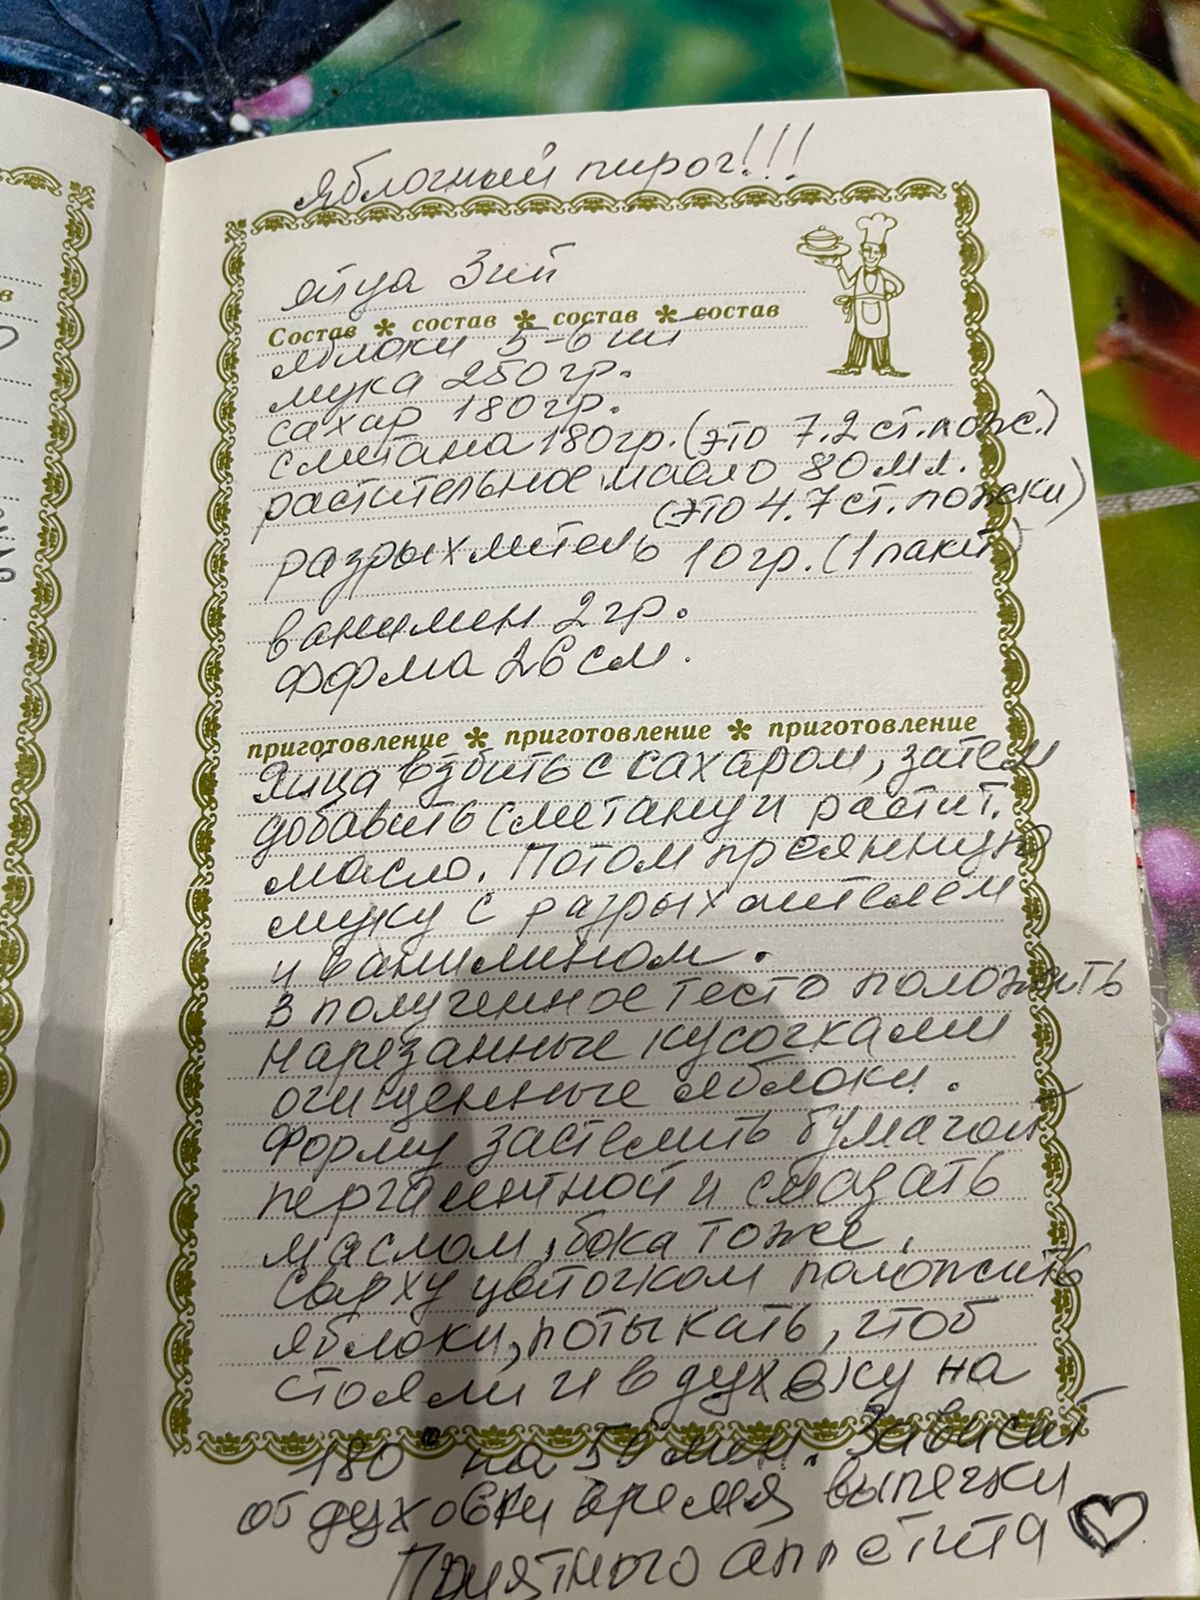 Яблочный пирог!!!
яйца 3шт
Состав * состав * состав * состав
яблоки 5-6 шт
мука 250гр.
сахар 180гр.
сметана 180гр. (это 7.2 ст. лож.)
растительное масло 80мл.
(это 4.7 ст. ложки)
разрыхлитель 10гр. (1 пакет)
ванилин 2гр.
Форма 26см.
приготовление * приготовление * приготовление
Яйца взбить с сахаром, затем
добавить сметану и растит.
масло. Потом просеянную
муку с разрыхлителем
и ванилином.
В полученное тесто положить
нарезанные кусочками
очищенные яблоки.
Форму застелить бумагой
пергаментной и смазать
маслом, бока тоже.
Сверху цветочком положить
яблоки, потыкать, чтоб
стояли и в духовку на
180° на 50 мин. Зависит
от духовки время выпечки
Приятного аппетита